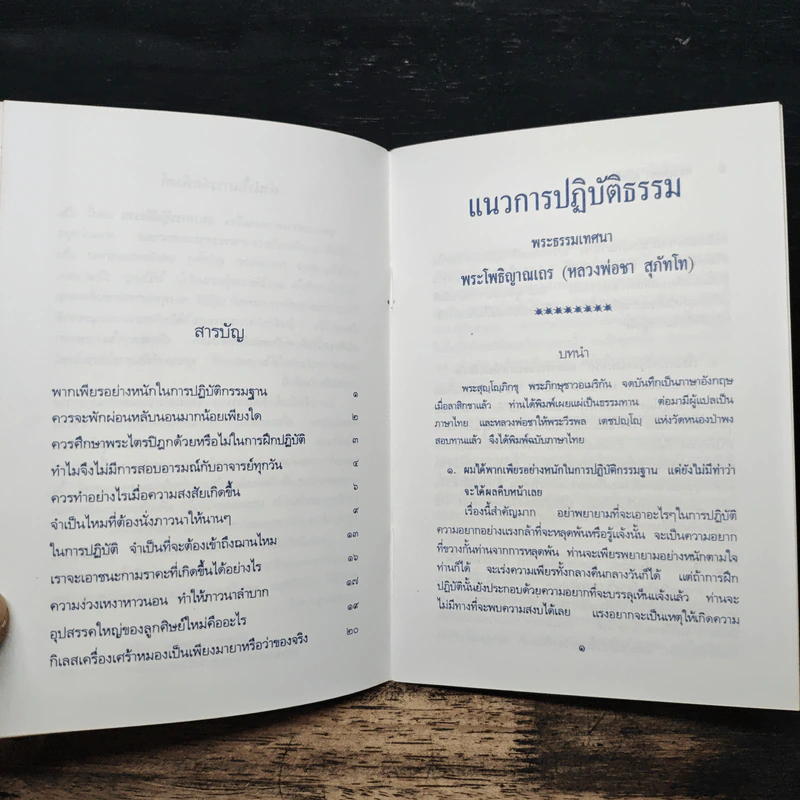 สารบัญ
พากเพียรอย่างหนักในการปฏิบัติกรรมฐาน ๑
ควรจะพักผ่อนหลับนอนมากน้อยเพียงใด ๒
ควรศึกษาพระไตรปิฎกด้วยหรือไม่ในการฝึกปฏิบัติ ๓
ทำไมจึงไม่มีการสอบอารมณ์กับอาจารย์ทุกวัน ๔
ควรทำอย่างไรเมื่อความสงสัยเกิดขึ้น ๖
จำเป็นไหมที่ต้องนั่งภาวนาให้นานๆ ๙
ในการปฏิบัติ จำเป็นที่จะต้องเข้าถึงฌานไหม ๑๓
เราจะเอาชนะกามราคะที่เกิดขึ้นได้อย่างไร ๑๖
ความง่วงเหงาหาวนอน ทำให้ภาวนาลำบาก ๑๗
อุปสรรคใหญ่ของลูกศิษย์ใหม่คืออะไร ๑๙
กิเลสเครื่องเศร้าหมองเป็นเพียงมายาหรือว่าของจริง ๒๐
แนวการปฏิบัติธรรม
พระธรรมเทศนา
พระโพธิญาณเถร (หลวงพ่อชา สุภัทโท)
********
บทนำ
พระสุญฺโญภิกขุ พระภิกษุชาวอเมริกัน จดบันทึกเป็นภาษาอังกฤษ
เมื่อลาสิกขาแล้ว ท่านได้พิมพ์เผยแผ่เป็นธรรมทาน ต่อมามีผู้แปลเป็น
ภาษาไทย และหลวงพ่อชาให้พระวีรพล เตชปญฺโญ แห่งวัดหนองป่าพง
สอบทานแล้ว จึงได้พิมพ์ฉบับภาษาไทย
๑. ผมได้พากเพียรอย่างหนักในการปฏิบัติกรรมฐาน แต่ยังไม่มีทำว่า
จะได้ผลคืบหน้าเลย
เรื่องนี้สำคัญมาก อย่าพยายามที่จะเอาอะไรๆในการปฏิบัติ
ความอยากอย่างแรงกล้าที่จะหลุดพ้นหรือรู้แจ้งนั้น จะเป็นความอยาก
ที่ขวางกั้นท่านจากการหลุดพ้น ท่านจะเพียรพยายามอย่างหนักตามใจ
ท่านก็ได้ จะเร่งความเพียรทั้งกลางคืนกลางวันก็ได้ แต่ถ้าการฝึก
ปฏิบัตินั้นยังประกอบด้วยความอยากที่จะบรรลุเห็นแจ้งแล้ว ท่านจะ
ไม่มีทางที่จะพบความสงบได้เลย แรงอยากจะเป็นเหตุให้เกิดความ
๑